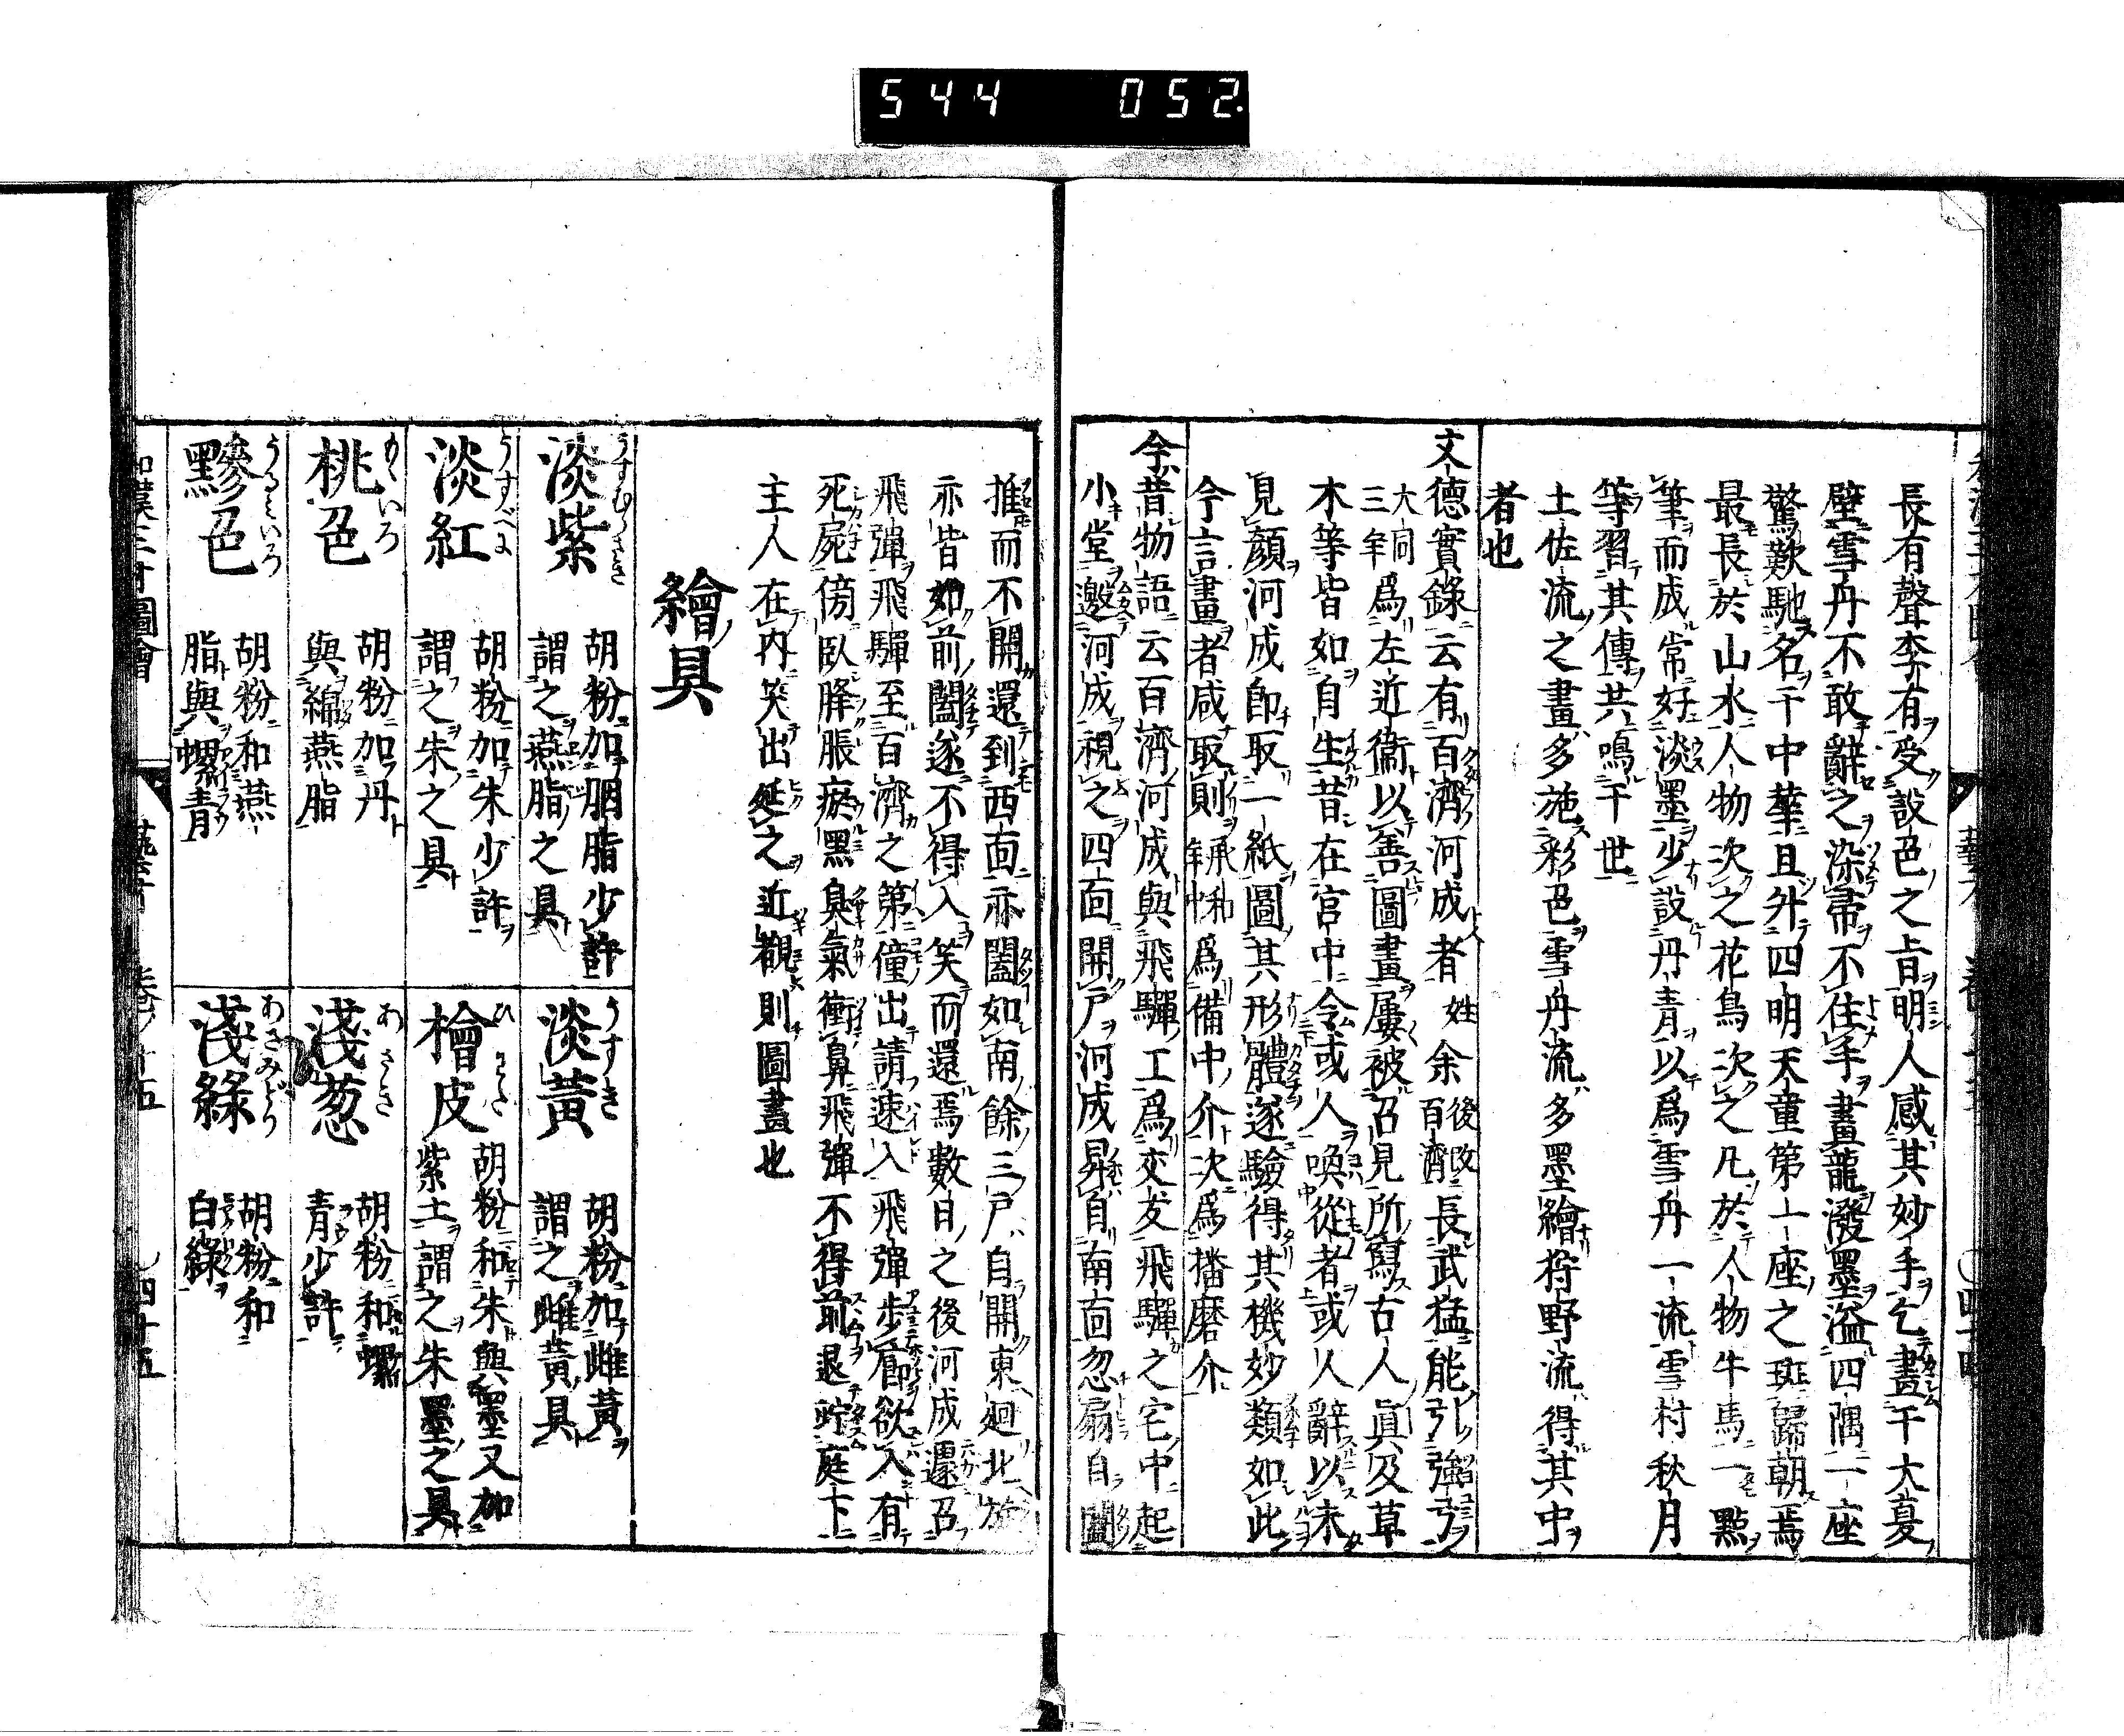 544 052
長有聲李有受設色之㫖明人感其妙手乞畫于大夏
壁雪舟不敢辭之染帚不住手畫龍潑墨溢四隅一座
驚歎馳名于中華且外四明天童第一座之班歸朝焉
最長於山水人物次之花鳥次之凡於人物牛馬一點
筆而成常好淡墨少設丹青以爲雪舟一流雪村秋月
等習其傳共鳴于世
土佐流之畫多施彩色雪舟流多墨繪狩野流得其中
者也
文德實錄云有百濟河成者姓余後改百濟長武猛能引強弓
大同三年爲左近衞以善圖畫屢被召見所寫古人眞及草
木等皆如自生昔在宮中令或人喚從者或人辭以未
見顏河成卽取一紙圖其形體遂驗得其機妙類如此
今言畫者咸取則承和年中爲備中介次爲播磨介
今昔物語云百濟河成與飛驒工爲交友飛驒之宅中起
小堂邀河成視之四面開戶河成昇自南面忽扇自闔
推而不開還到西面亦闔如南餘三戶自開東廻北旋
亦皆如前闔遂不得入笑而還焉數日之後河成還召
飛彈飛驒至百濟之第僮出請速入飛彈步廊欲入有
死屍傍臥胮脹瘀黑臭氣衝鼻飛彈不得前退跨庭下
主人在內笑出延之近觀則圖畫也
繪具
淡紫 うすむらさき 胡粉加胭脂少許
謂之燕脂之具
淡黃 うすき 胡粉加雌黃
謂之雌黃具
淡紅 うすべに 胡粉加朱少許
謂之朱之具
檜皮 ひわだ 胡粉和朱與墨又加
紫土謂之朱墨之具
桃色 もゝいろ 胡粉加丹
與綿燕脂
淺葱 あさき 胡粉和螺
青少許
黲色 うるみいろ 胡粉和燕
脂與螺青
淺綠 あさみどり 胡粉和
白綠
和漢三才圖會 藝才 卷ノ十五 四十五